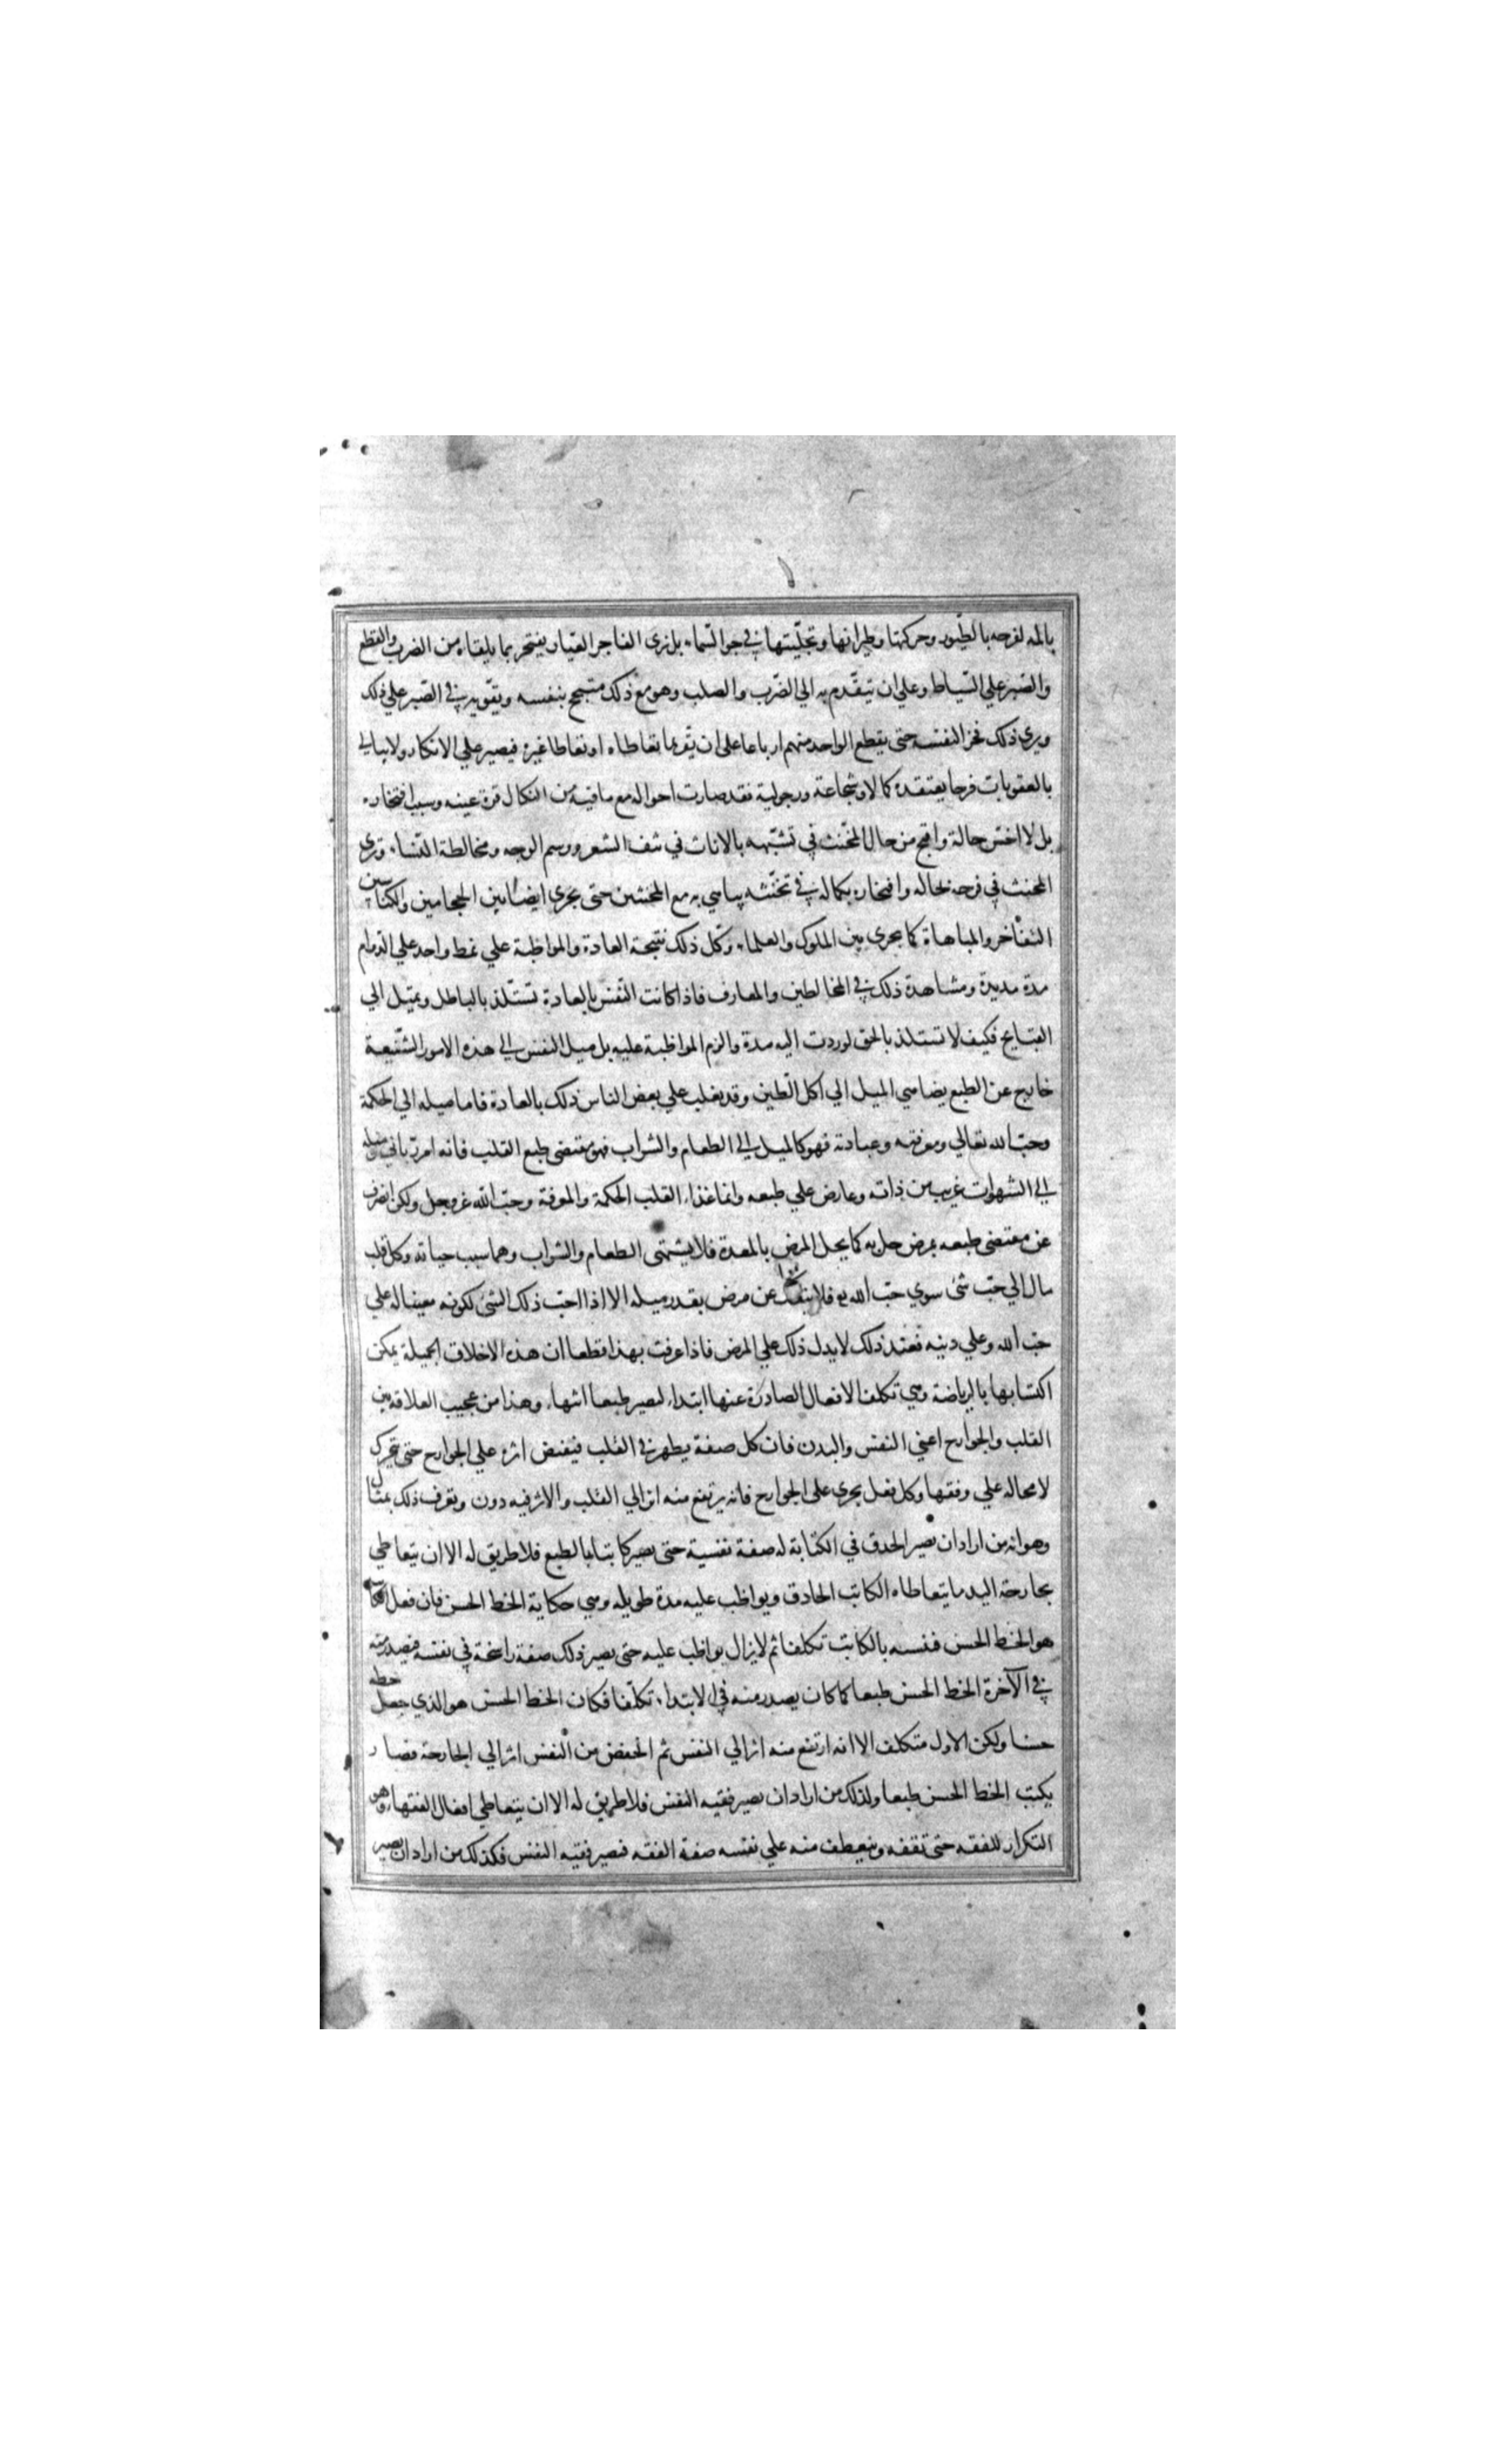 بالمه لفرحه بالطيور وحركتها وطيرانها وتحليتها في جو السماء بل نرى الفاجر العيار يفتخر بما يلقاه من الضرب والقطع
والصبر علي السياط وعلي ان يتقدم به الي الضرب والصلب وهو مع ذلك متبجح بنفسه وبقوته في الصبر علي ذلك
ويرى ذلك فخرا لنفسه حتى يقطع الواحد منهم اربا عاعلى ان يقر بما تعاطاه او تعاطا غيره فيصير علي الانكار ولا يبالي
بالعقوبات فرحا يعتقده كمالا وشجاعة ورجولية فقد صارت احواله مع ما فيه من النكال قرة عينه وسبب افتخاره
بل لا اخس حالة واقبح من حال المخنث في تشبهه بالاناث في نتف الشعر ووسم الوجه ومخالطة النساء وترى
المخنث في فرحه بحاله وافتخاره بكماله في تخنثه يباهي به مع المخنثين حتى يجرى ايضا بين الحجامين والكناسين
التفاخر والمباهاة كما يجرى بين الملوك والعلماء وكل ذلك نتيجة العادة والمواظبة علي نمط واحد علي الدوام
مدة مديدة ومشاهدة ذلك في المخالطين والمعارف فاذا كانت النفس بالعادة تستلذ بالباطل ويميل الي
القبايح فكيف لا تستلذ بالحق لو ردت اليه مدة والزم المواظبة عليه بل ميل النفس الي هذه الامور الشنيعة
خارج عن الطبع يضاهي الميل الي اكل الطين وقد يغلب علي بعض الناس ذلك بالعادة فاما ميله الي الحكمة
وحب الله تعالي ومعرفته وعبادته فهو كالميل الي الطعام والشراب فهو مقتضى طبع القلب فانه امر رباني وميله
الي الشهوات غريب من ذاته وعارض علي طبعه وانما غذاء القلب الحكمة والمعرفة وحب الله عز وجل ولكن انصرف
عن مقتضى طبعه بمرض حل به كما يحل المرض بالمعدة فلا يشتهى الطعام والشراب وهما سبب حياته وكل قلب
مال الي حب شئ سوي حب الله تع فلا ينفك عن مرض بقدر ميله الا اذا احب ذلك الشئ لكونه معينا له علي
حب الله وعلي دينه فعند ذلك لا يدل ذلك علي المرض فاذا عرفت بهذا قطعا ان هذه الاخلاق الجميلة يمكن
اكتسابها بالرياضة وهي تكلف الافعال الصادرة عنها ابتداء ليصير طبعا انتهاء وهذا من عجيب العلاقة بين
القلب والجوارح اعني النفس والبدن فان كل صفة يظهر في القلب فيفيض اثره علي الجوارح حتى يتحرك
لا محاله علي وفقها وكل فعل يجرى على الجوارح فانه يرتفع منه اثر الي القلب والاثر فيه دون ويعرف ذلك بمثال
وهو انه من اراد ان يصير الحذق في الكتابة له صفة نفسية حتى يصير كاتبا بالطبع فلا طريق له الا ان يتعاطي
بجارحة اليد ما يتعاطاه الكاتب الحاذق ويواظب عليه مدة طويله وهي حكاية الخط الحسن فان فعل الكاتب
هو الخط الحسن فتسبه بالكاتب تكلفا ثم لا يزال يواظب عليه حتى يصير ذلك صفة راسخة في نفسه فيصدر منه
في الآخرة الخط الحسن طبعا كما كان يصدر منه في الابتداء تكلفا فكان الخط الحسن هو الذي جعل خطه
حسنا ولكن الاول متكلف الا انه ارتفع منه اثر الي النفس ثم انخفض من النفس اثر الي الجارحة فصار
يكتب الخط الحسن طبعا ولذلك من اراد ان يصير فقيه النفس فلا طريق له الا ان يتعاطي افعال الفقهاء وهو
التكرار للفقه حتى تقفه وينعطف منه علي نفسه صفة الفقه فيصير فقيه النفس فكذلك من اراد ان يصير